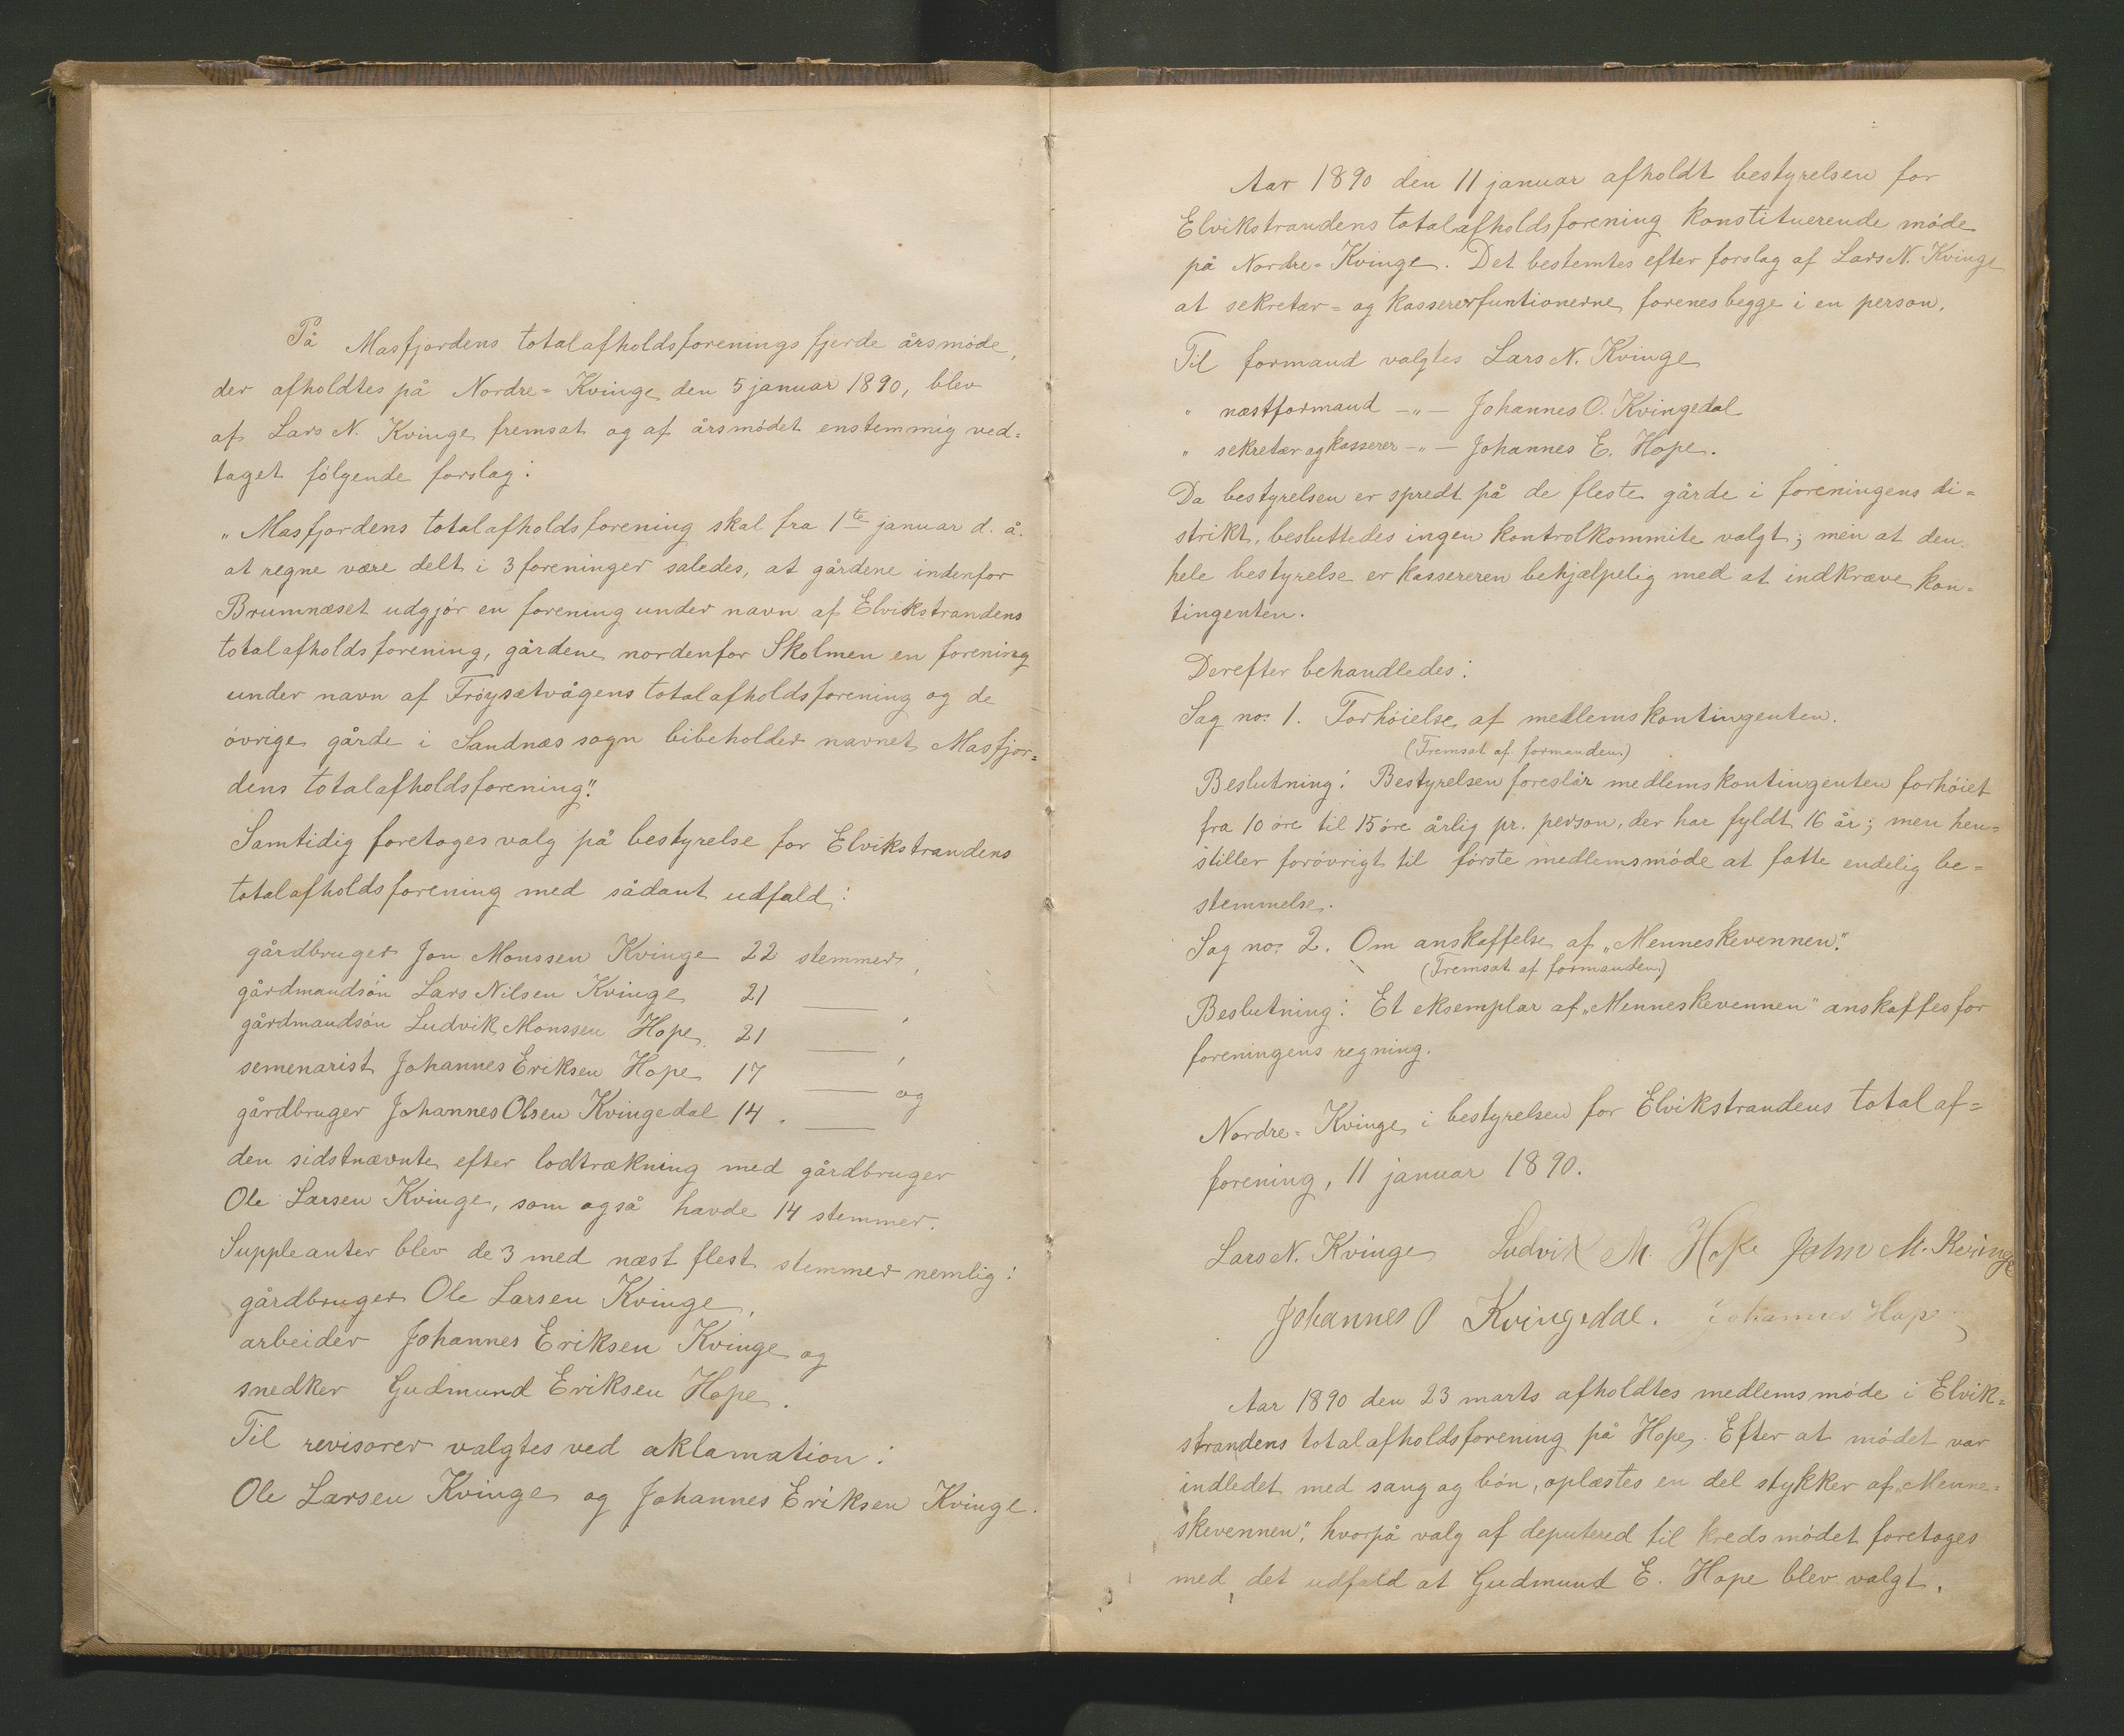 På Masfjordens totalafholdsforenings fjerde årsmøde,
der afholdtes på Nordre=Kvinge den 5 januar 1890, blev
af Lars N. Kvinge fremsat og af årsmødet enstemmig ved=
taget følgende forslag:
„Masfjordens totalafholdsforening skal fra 1te januar d. å.
at regne være delt i 3 foreninger saledes, at gårdene indenfor
Brumnæset udgjør en forening under navn af Elvikstrandens
totalafholdsforening, gårdene nordenfor Skolmen en forening
under navn af Frøysætvågens totalafholdsforening og de
øvrige gårde i Sandnæs sogn bibeholder navnet Masfjor=
dens totalafholdsforening".
Samtidig foretoges valg på bestyrelse for Elvikstrandens
totalafholdsforening med sådant udfald:
gårdbruger Jon Monssen Kvinge 22 stemmer,
gårdmandsøn Lars Nilsen Kvinge 21 — ,
gårdmandsøn Ludvik Monssen Hope 21 — ,
semenarist Johannes Eriksen Hope 17 — og
gårdbruger Johannes Olsen Kvingedal 14. —
den sidstnævnte efter lodtrækning med gårdbruger
Ole Larsen Kvinge, som også havde 14 stemmer.
Suppleanter blev de 3 med næst flest stemmer nemlig:
gårdbruger Ole Larsen Kvinge,
arbeider Johannes Eriksen Kvinge og
snedker Gudmund Eriksen Hope.
Til revisorer valgtes ved aklamation:
Ole Larsen Kvinge og Johannes Eriksen Kvinge.
Aar 1890 den 11 januar afholdt bestyrelsen for
Elvikstrandens totalafholdsforening konstituerende møde
på Nordre=Kvinge. Det bestemtes efter forslag af Lars N. Kvinge
at sekretær= og kassererfuntionerne forenes begge i en person.
Til formand valgtes Lars N. Kvinge
" næstformand —"— Johannes O. Kvingedal
" sekretær og kasserer —"— Johannes E. Hope.
Da bestyrelsen er spredt på de fleste gårde i foreningens di=
strikt, besluttedes ingen kontrolkommite valgt; men at den
hele bestyrelse er kassereren behjælpelig med at indkræve kon=
tingenten.
Derefter behandledes:
Sag no. 1. Forhøielse af medlemskontingenten.
(Fremsat af formanden.)
Beslutning: Bestyrelsen foreslår medlemskontingenten forhøiet
fra 10 øre til 15 øre årlig pr. person, der har fyldt 16 år; men hen=
stiller forøvrigt til første medlemsmøde at fatte endelig be=
stemmelse.
Sag no. 2. Om anskaffelse af „Menneskevennen".
(Fremsat af formanden)
Beslutning: Et eksemplar af „Menneskevennen" anskaffes for
foreningens regning.
Nordre=Kvinge i bestyrelsen for Elvikstrandens total af=
forening, 11 januar 1890.
Lars N. Kvinge Ludvik M. Hope John M. Kvinge
Johannes O Kvingedal. Johannes Hope
Aar 1890 den 23 marts afholdtes medlemsmøde i Elvik=
strandens totalafholdsforening på Hope. Efter at mødet var
indledet med sang og bøn, oplæstes en del stykker af „Menne=
skevennen", hvorpå valg af deputered til kredsmødet foretoges
med det udfald at Gudmund E. Hope blev valgt.